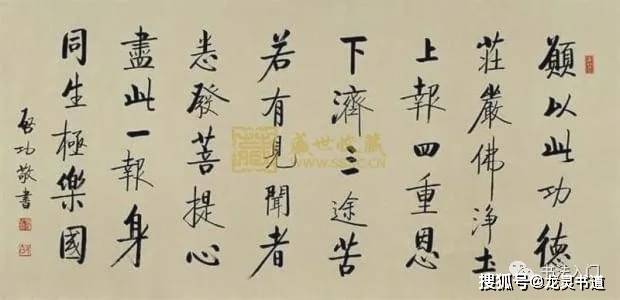 願以此功德
莊嚴佛淨土
上報四重恩
下濟三途苦
若有見聞者
悉發菩提心
盡此一報身
同生極樂國
啟功敬書
盛世收藏
书法入门
搜狐号@龙灵书道